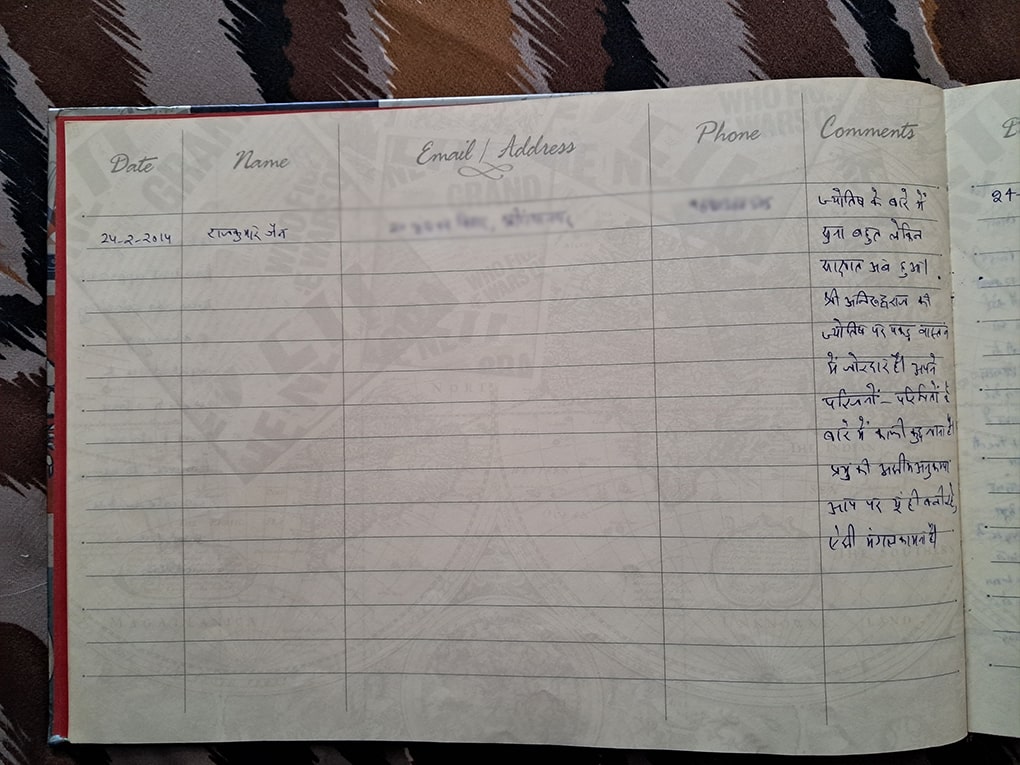 Date Name Email / Address Phone Comments
24-2-2014 राजकुमार जैन
ज्योतिष के बारे में
सुना बहुत लेकिन
साक्षात अब हुआ।
श्री अनिरुद्धराज की
ज्योतिष पर पकड़ वास्तव
में जोरदार है। अपने
परिजनों – परिचितों के
बारे में काफी कुछ जाना है।
प्रभु की असीम अनुकम्पा
आप पर यूं ही बनी रहे,
ऐसी मंगलकामना है।
24-